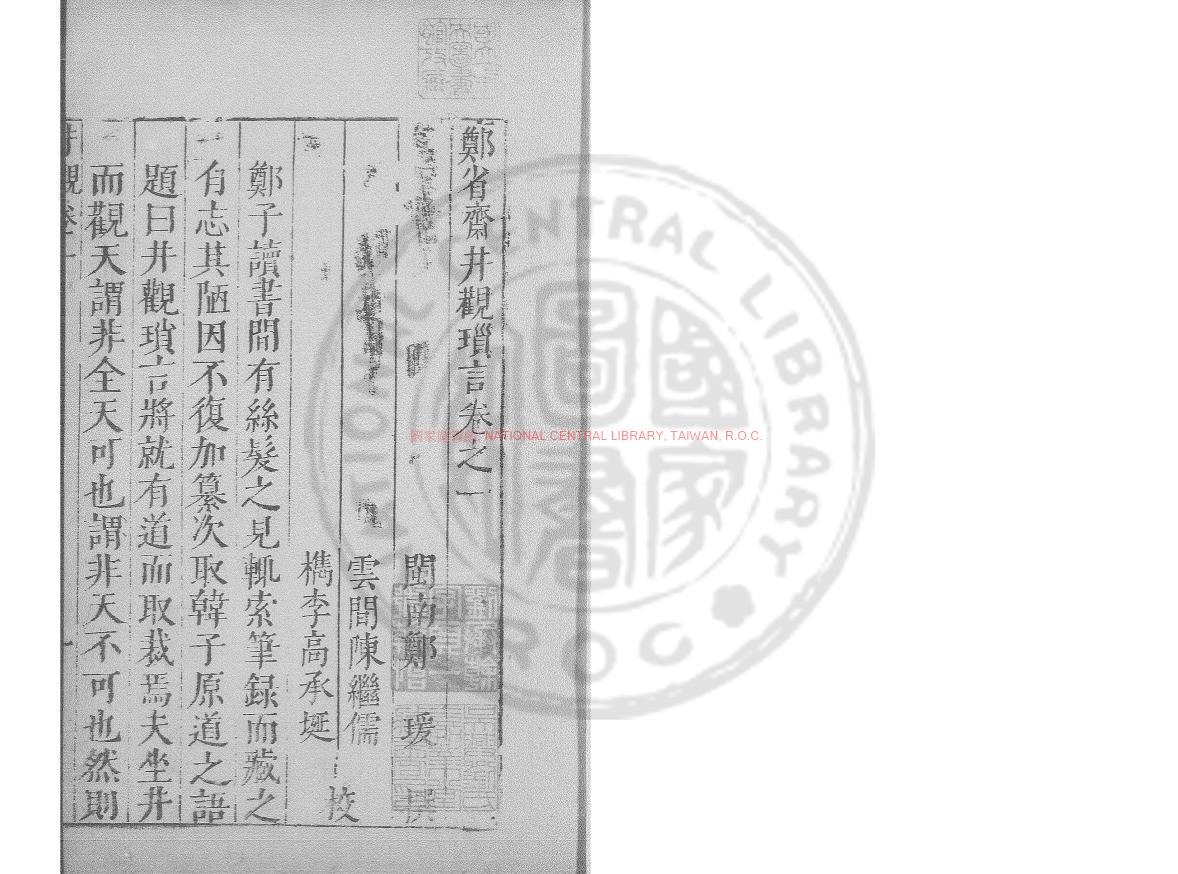 鄭省齋井觀瑣言卷之一
閩南鄭瑗撰
雲間陳繼儒
檇李高承埏
校
鄭子讀書間有絲髮之見輒索筆録而藏之
有志其陋因不復加纂次取韓子原道之語
題曰井觀瑣言將就有道而取裁焉夫坐井
而觀天謂非全天可也謂非天不可也然則
井觀卷一
一
國家圖書館 NATIONAL CENTRAL LIBRARY, TAIWAN, R.O.C.
NATIONAL CENTRAL LIBRARY
R.O.C
國家圖書